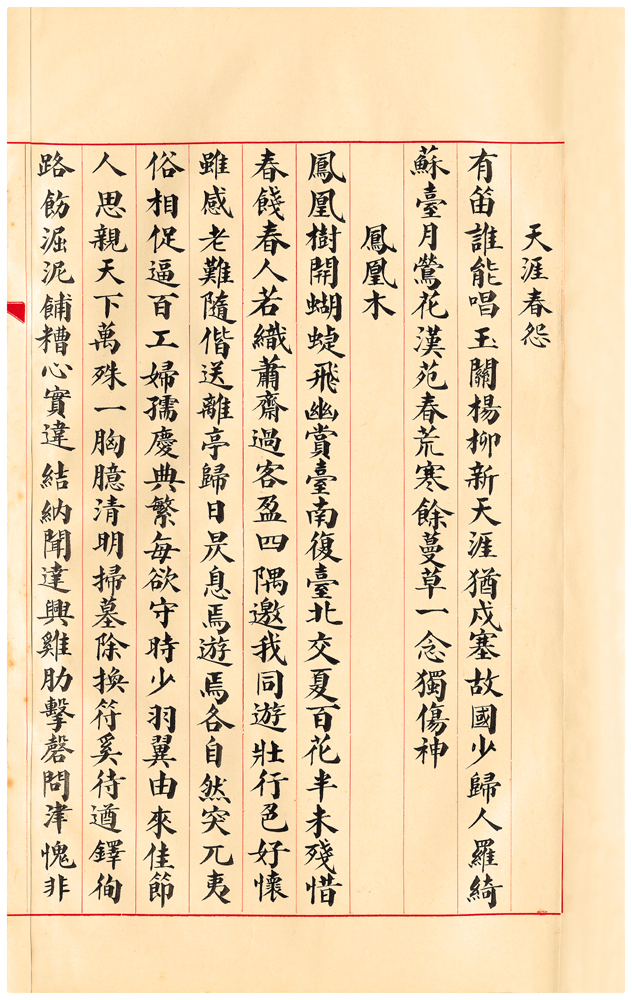 天涯春怨
有笛誰能唱玉關楊柳新天涯猶戍塞故國少歸人羅綺
蘇臺月鶯花漢苑春荒寒餘蔓草一念獨傷神
鳳凰木
鳳凰樹開蝴蜨飛幽賞臺南復臺北交夏百花半未殘惜
春餞春人若織蕭齋過客盈四隅邀我同遊壯行色好懷
雖感老難隨偕送離亭歸日昃息焉遊焉各自然突兀夷
俗相促逼百工婦孺慶典繁每欲守時少羽翼由來佳節
人思親天下萬殊一胸臆清明掃墓除換符奚待遒鐸徇
路飭淈泥餔糟心實違結納聞達興雞肋擊磬問津愧非